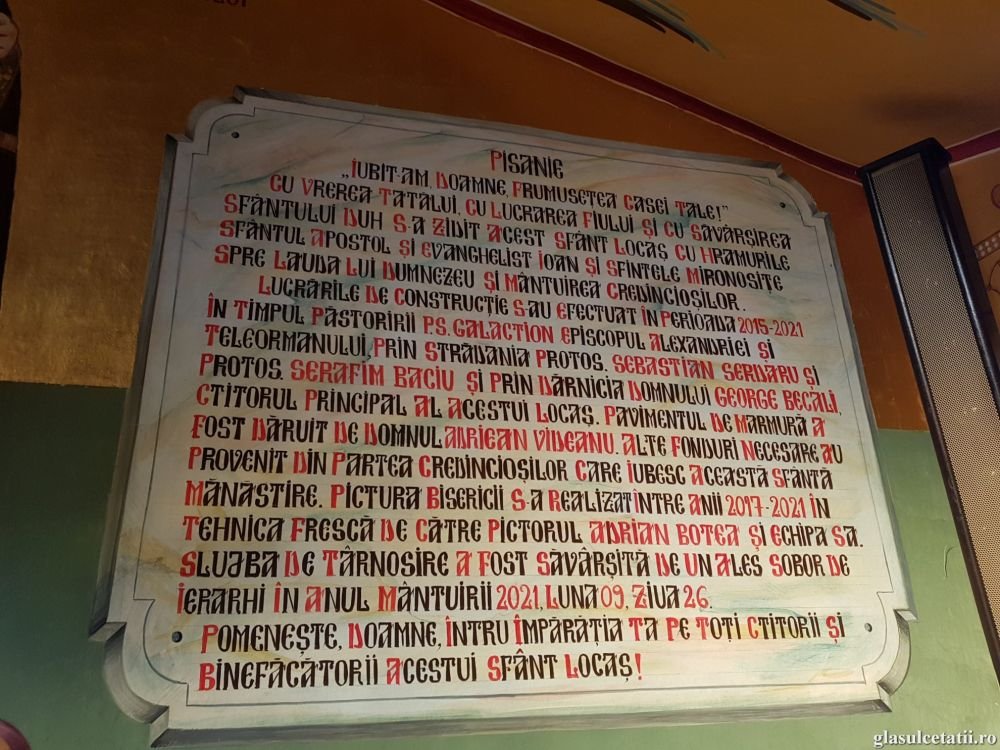 PISANIE
„IUBIT-AM, DOAMNE, FRUMUSEȚEA CASEI TALE!”
CU VREREA TATĂLUI, CU LUCRAREA FIULUI ȘI CU SĂVÂRȘIREA
SFÂNTULUI DUH S-A ZIDIT ACEST SFÂNT LOCAȘ CU HRAMURILE
SFÂNTUL APOSTOL ȘI EVANGHELIST IOAN ȘI SFINTELE MIRONOSIȚE
SPRE LAUDA LUI DUMNEZEU ȘI MÂNTUIREA CREDINCIOȘILOR.
LUCRĂRILE DE CONSTRUCȚIE S-AU EFECTUAT ÎN PERIOADA 2015-2021
ÎN TIMPUL PĂSTORIRII P.S. GALACTION EPISCOPUL ALEXANDRIEI ȘI
TELEORMANULUI, PRIN STRĂDANIA PROTOS. SEBASTIAN SERDARU ȘI
PROTOS. SERAFIM BACIU ȘI PRIN DĂRNICIA DOMNULUI GEORGE BECALI,
CTITORUL PRINCIPAL AL ACESTUI LOCAȘ. PAVIMENTUL DE MARMURĂ A
FOST DĂRUIT DE DOMNUL ADRIEAN VIDEANU. ALTE FONDURI NECESARE AU
PROVENIT DIN PARTEA CREDINCIOȘILOR CARE IUBESC ACEASTĂ SFÂNTĂ
MĂNĂSTIRE. PICTURA BISERICII S-A REALIZAT ÎNTRE ANII 2017-2021 ÎN
TEHNICA FRESCĂ DE CĂTRE PICTORUL ADRIAN BOTEA ȘI ECHIPA SA.
SLUJBA DE TÂRNOSIRE A FOST SĂVÂRȘITĂ DE UN ALES SOBOR DE
IERARHI ÎN ANUL MÂNTUIRII 2021, LUNA 09, ZIUA 26.
POMENEȘTE, DOAMNE, ÎNTRU ÎMPĂRĂȚIA TA PE TOȚI CTITORII ȘI
BINEFĂCĂTORII ACESTUI SFÂNT LOCAȘ!
glasulcetatii.ro